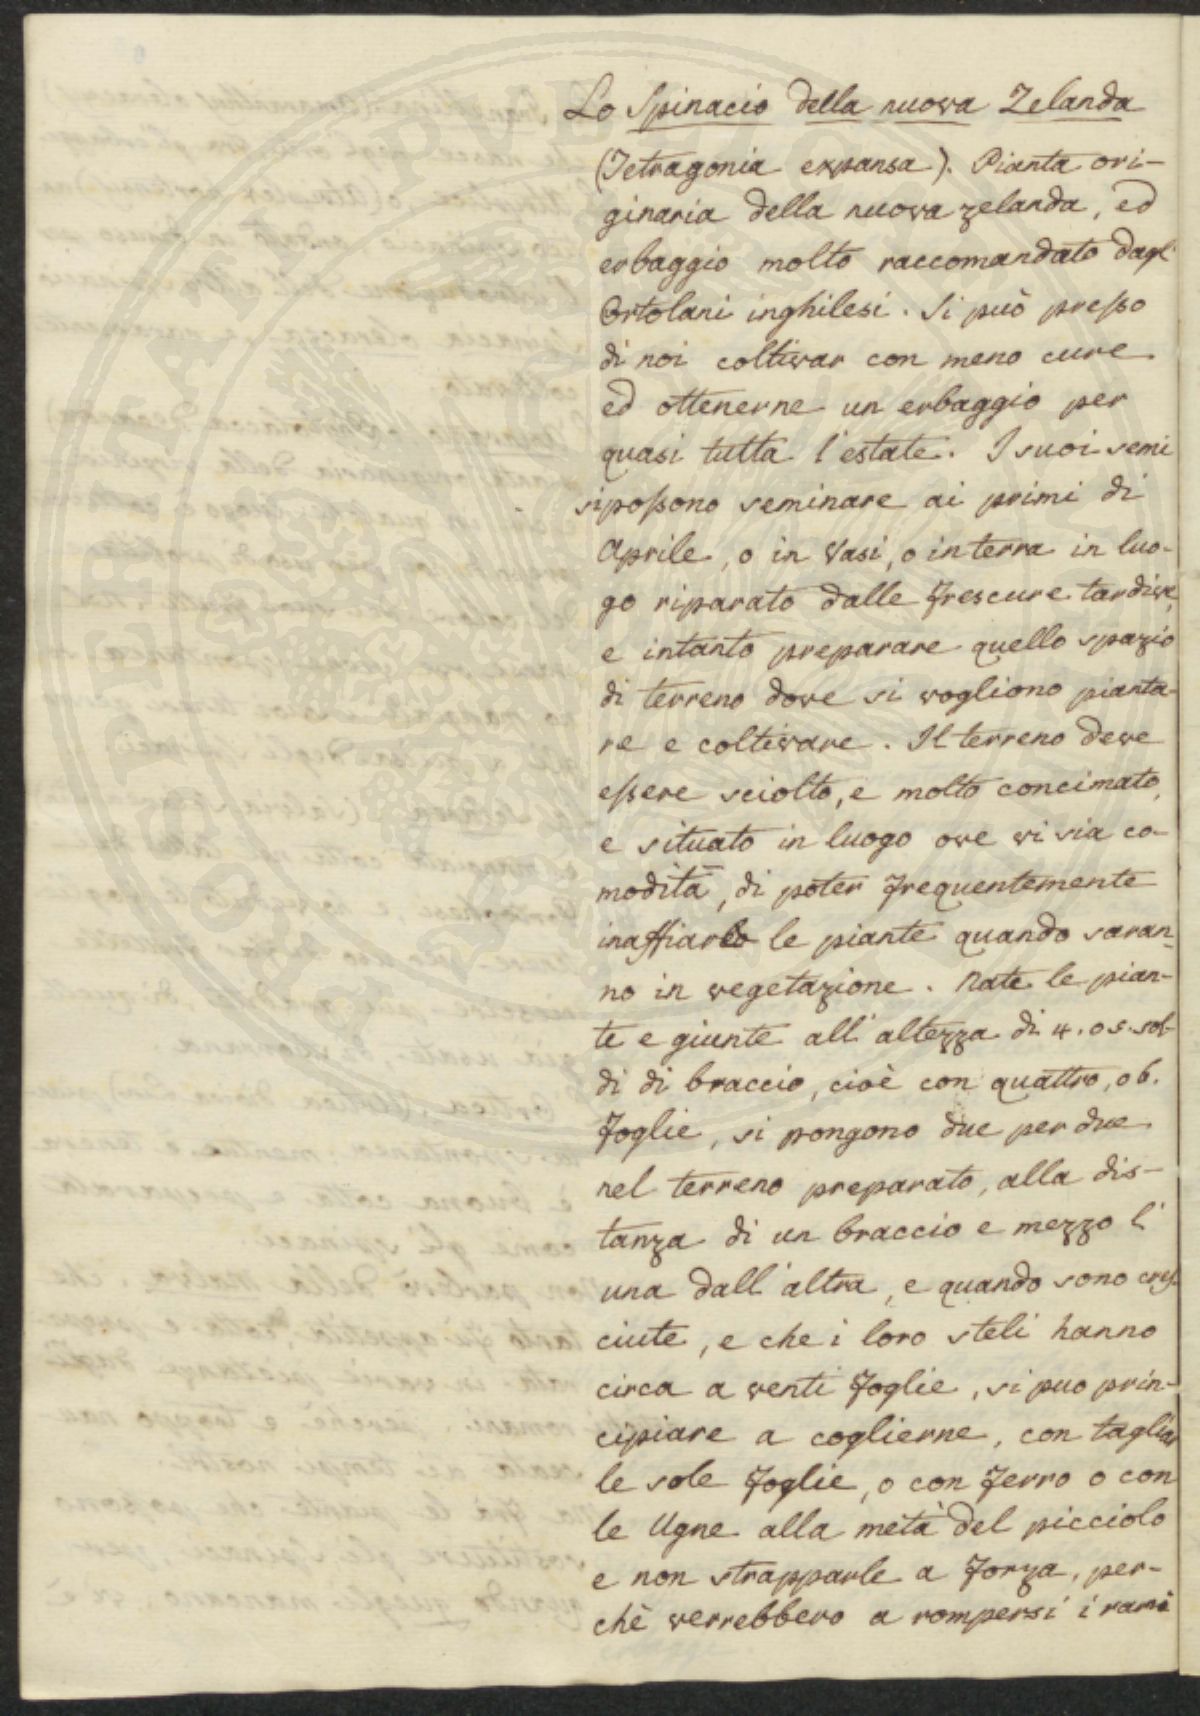 Lo Spinacio della nuova Zelanda
(Tetragonia expansa). Pianta ori-
ginaria della nuova zelanda, ed
erbaggio molto raccomandato dagl'
Ortolani inghilesi. Si può presso
di noi coltivar con meno cure
ed ottenerne un erbaggio per
quasi tutta l'estate. I suoi semi
si possono seminare ai primi di
Aprile, o in Vasi, o in terra in luo-
go riparato dalle frescure tardive,
e intanto preparare quello spazio
di terreno dove si vogliono pianta-
re e coltivare. Il terreno deve
essere sciolto, e molto concimato,
e situato in luogo ove vi sia co-
modità, di poter frequentemente
inaffiar le piante quando saran-
no in vegetazione. Nate le pian-
te e giunte all'altezza di 4. o 5. sol-
di di braccio, cioè con quattro, o 6.
foglie, si pongono due per due
nel terreno preparato, alla dis-
tanza di un braccio e mezzo l'
una dall'altra, e quando sono cres-
ciute, e che i loro steli hanno
circa a venti foglie, si puo prin-
cipiare a coglierne, con tagliar
le sole foglie, o con ferro o con
le Ugne alla metà del picciolo
e non strapparle a forza, per-
chè verrebbero a rompersi i rami